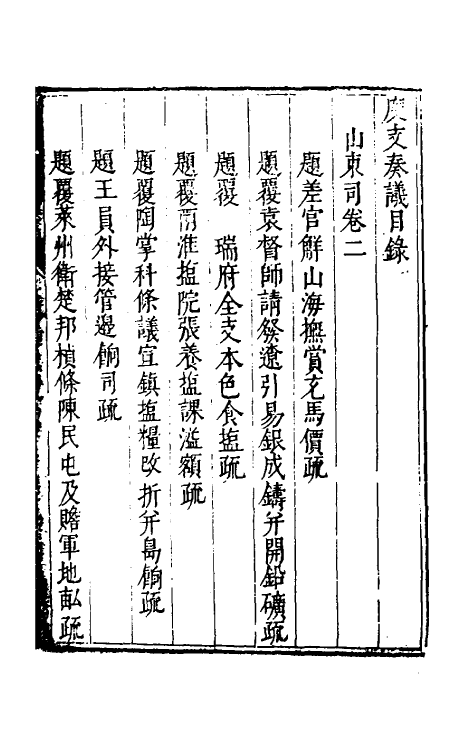 度支奏議目錄
山東司卷二
題差官解山海撫賞充馬價疏
題覆袁督師請發遼引易銀成鑄并開鉛礦疏
題覆　瑞府全支本色食塩疏
題覆兩淮塩院張養塩課溢額疏
題覆陶掌科條議宣鎮塩糧改折并島餉疏
題王員外接管邊餉司疏
題覆萊州衛楚邦楨條陳民屯及贍軍地畝疏